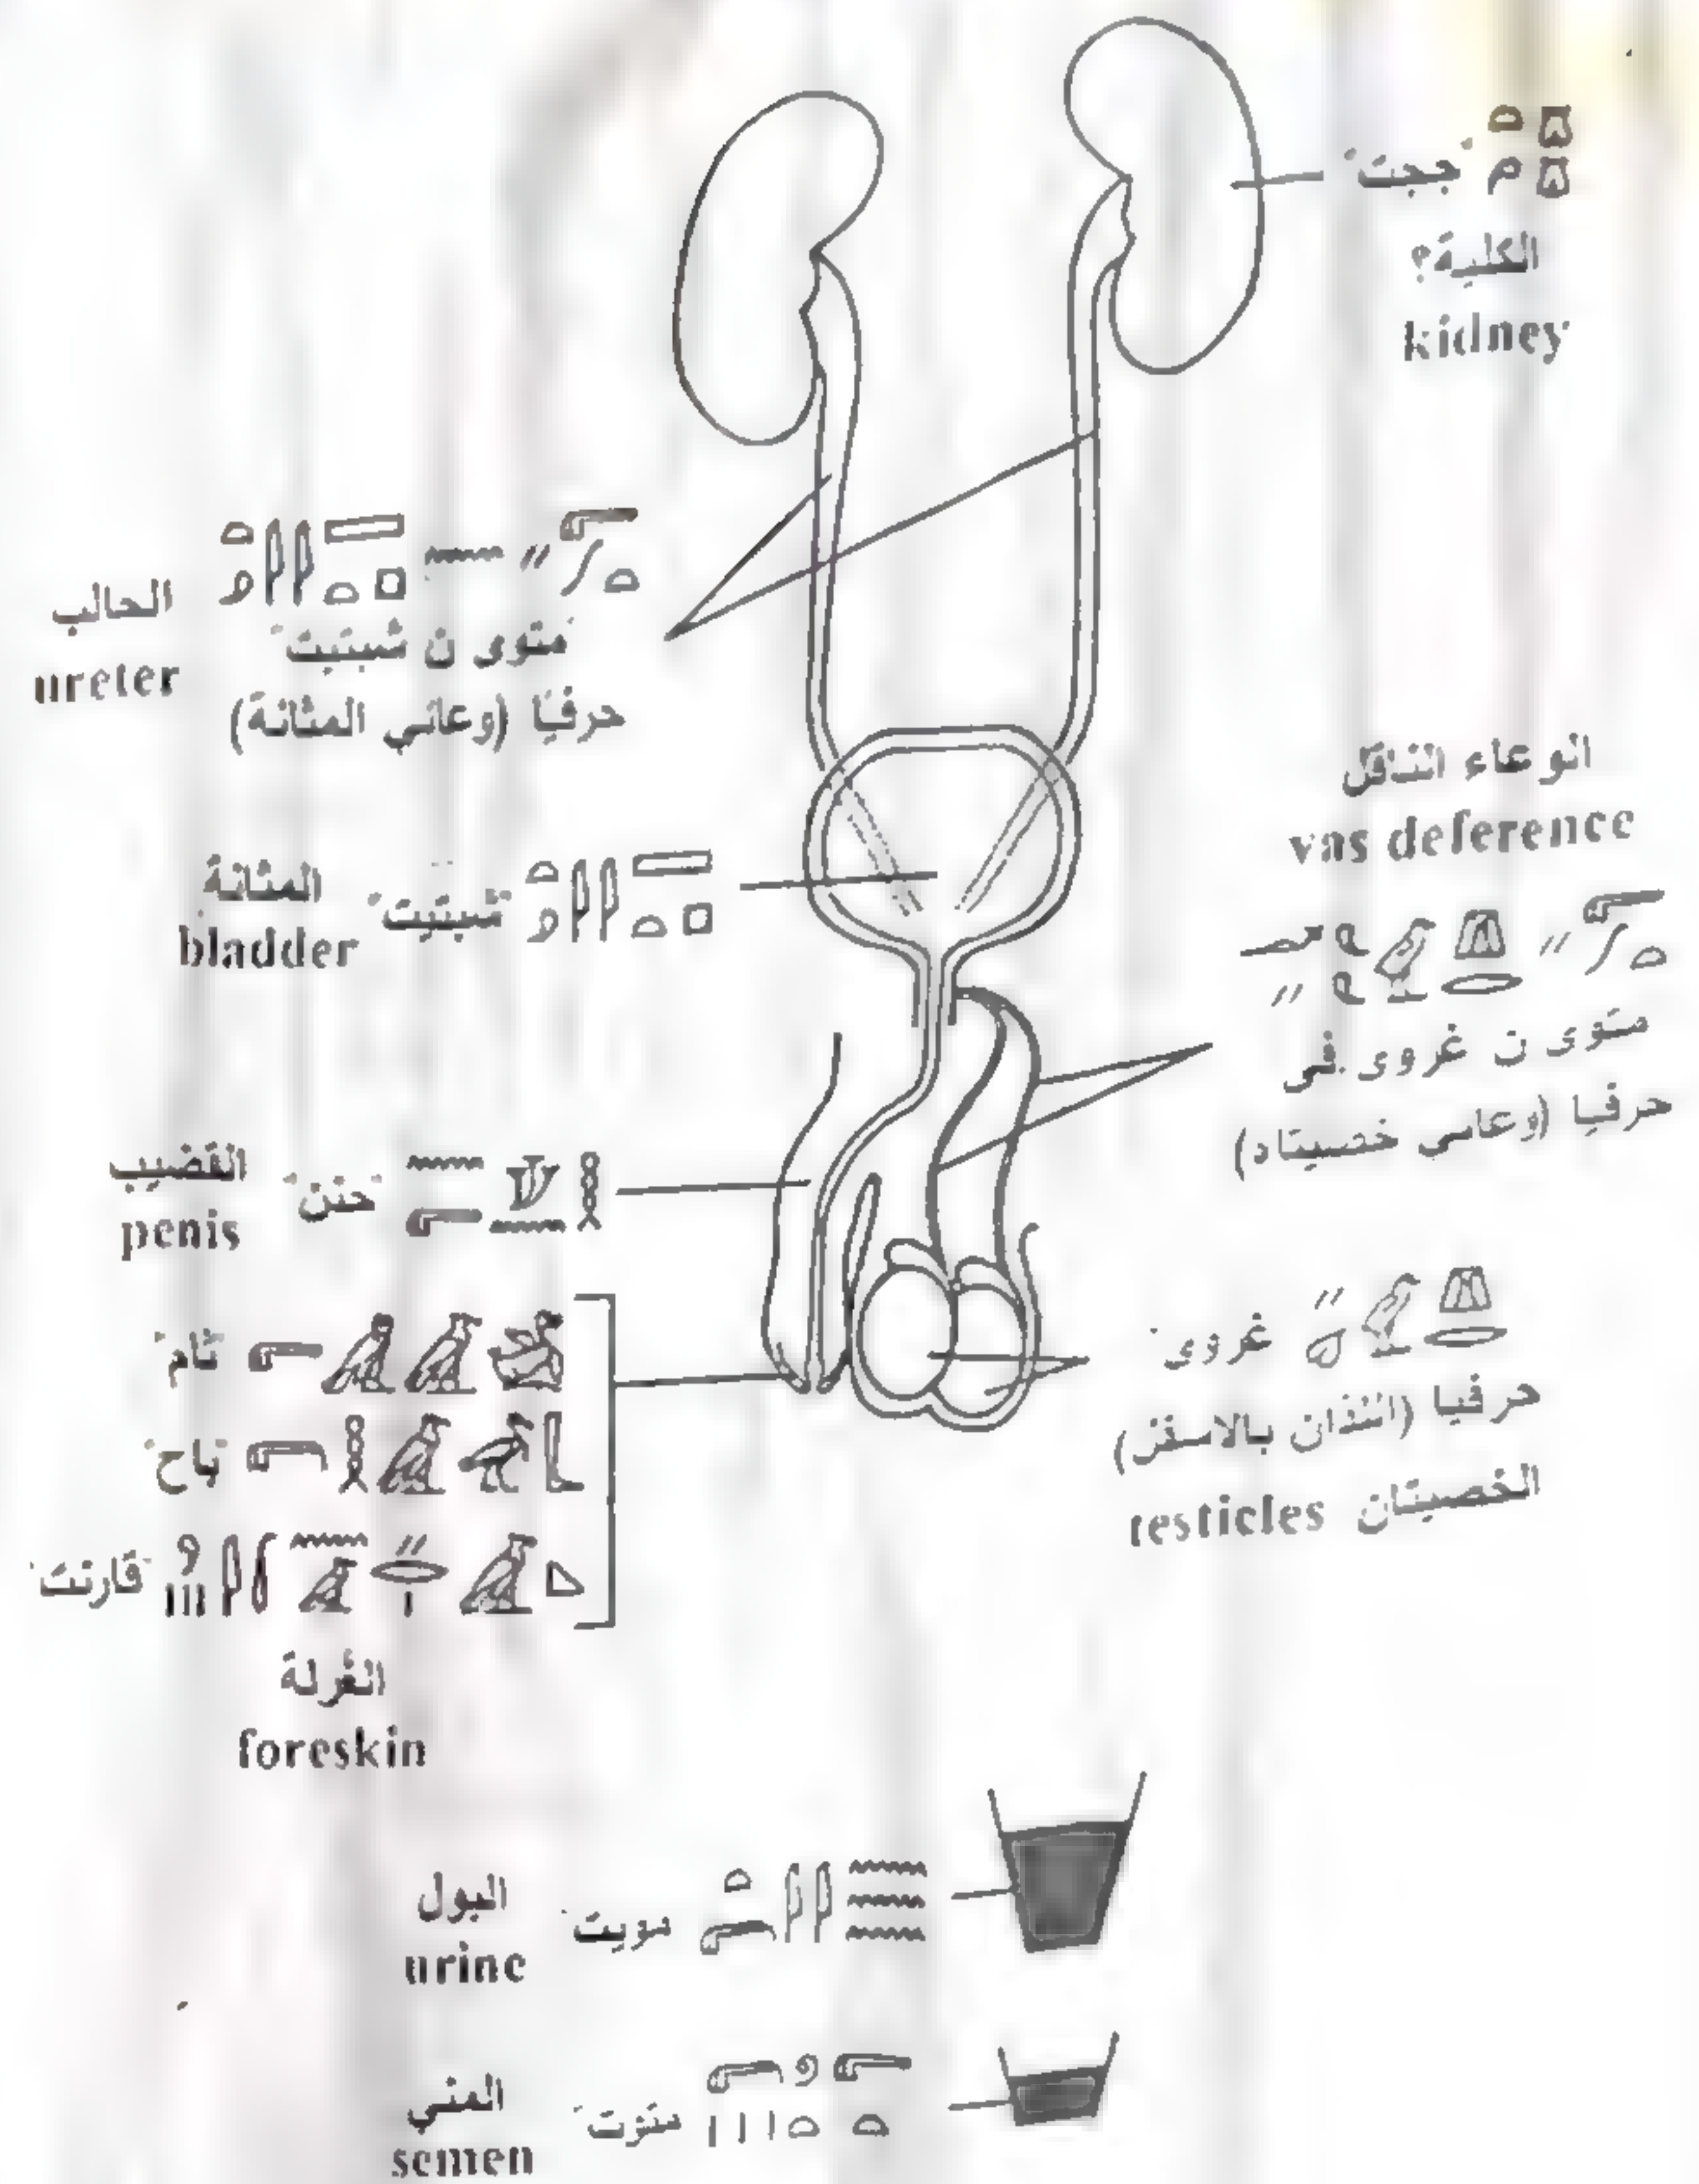 "ججت"
الكلية؟
kidney
الحالب
ureter
"متوى ن شبتيت"
حرفيا (وعائي المثانة)
الوعاء الناقل
vas deference
متوى ن غروى فى
حرفيا (وعاسي خصيتاه)
المثانة
bladder
"شبتيت"
القضيب
penis
"حنن"
"تام"
"باح"
"قارنت"
الغرلة
foreskin
غروى"
حرفيا (اللذان بالاسفل)
testicles الخصيتان
البول
urine
مويت"
المني
semen
"متوت"